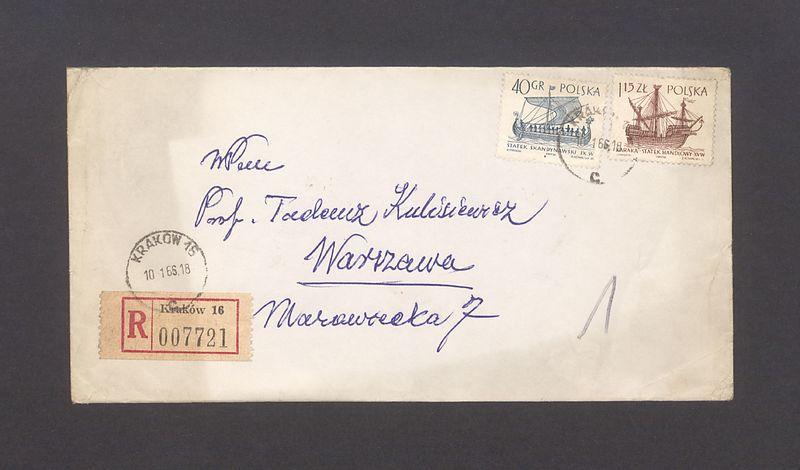 40 GR POLSKA
STATEK SKANDYNAWSKI IX.W
1,15 ZŁ POLSKA
KARAKA-STATEK HANDLOWY XV W
KRAKÓ
1 66.18
C.
WPan
Prof. Tadeusz Kulisiewicz
Warszawa
Mazowiecka 7
1
KRAKÓW 16
10 1.66.18
C
R
Kraków 16
007721